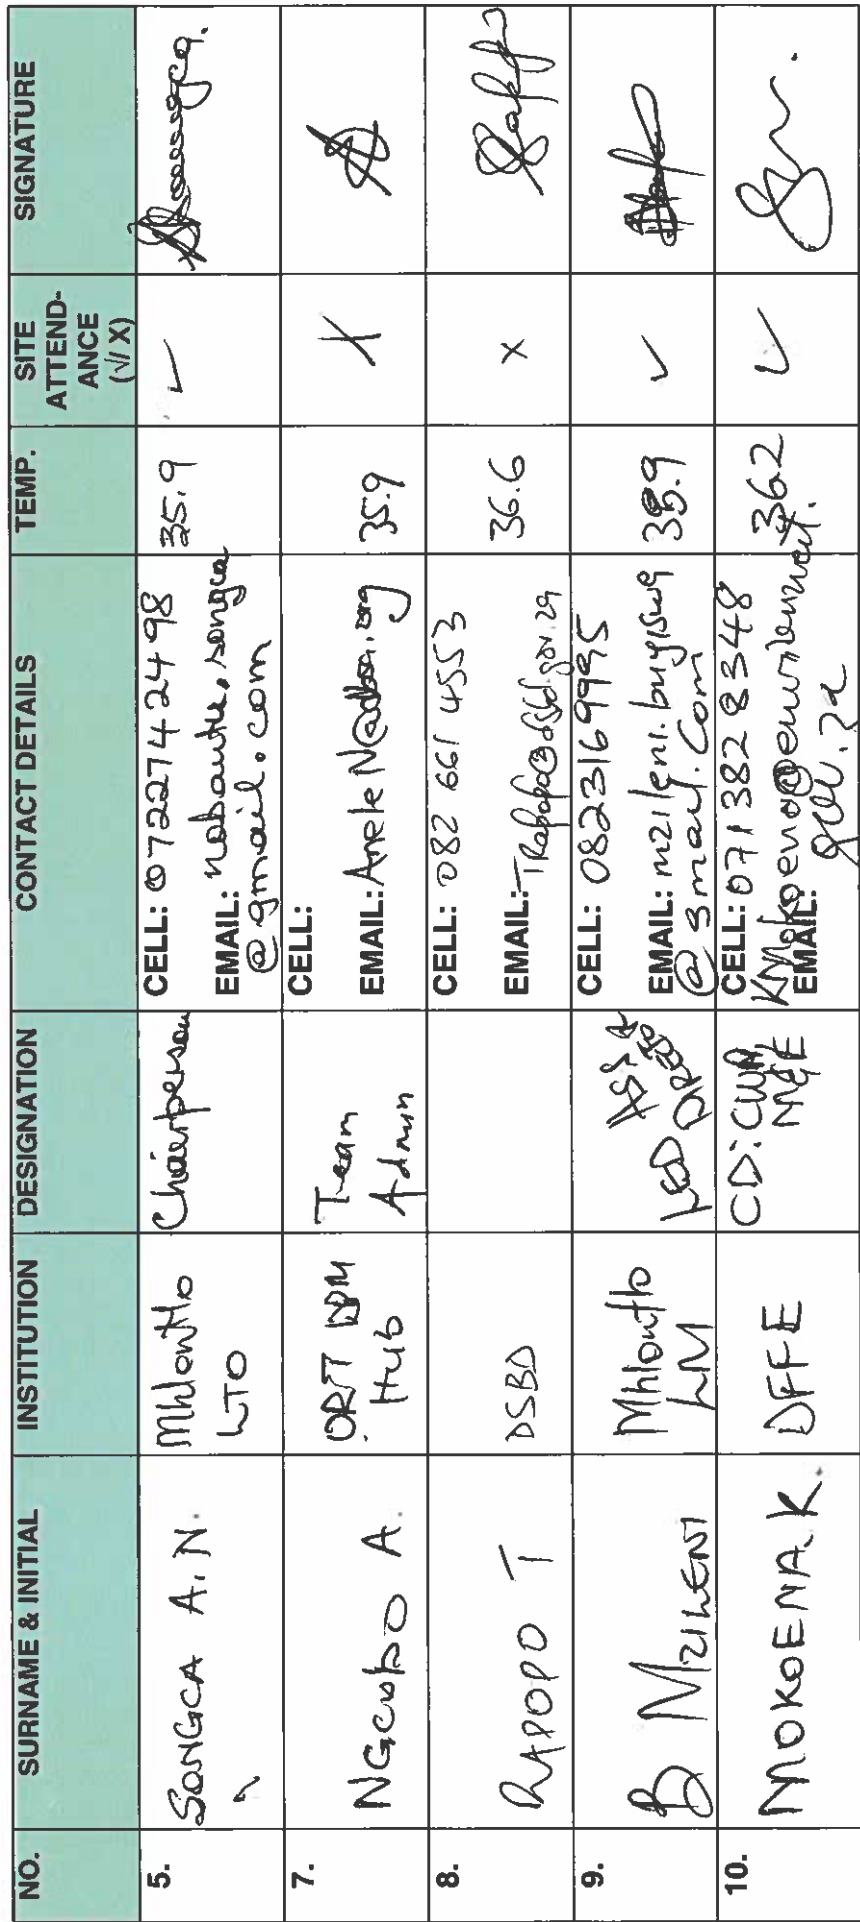 NO. SURNAME & INITIAL INSTITUTION DESIGNATION CONTACT DETAILS TEMP. SITE ATTEND-ANCE (√/ X) SIGNATURE
5. SONGCA A.N. Mhlontlo LTO Chairperson CELL: 0722742498 35.9 ✓
EMAIL: nobantu.songca
@gmail.com
7. NGcubo A. ORT DDM Hub Team Admin CELL: 35.9 X
EMAIL: AneleN@
8. RAPOPO T DSBD CELL: 082 661 4553 36.6 x
EMAIL: TRapopo@dsbd.gov.za
9. B MZILENI Mhlontlo LM LED CELL: 0823169995 ✓
EMAIL: mzileni.buyiswa
@gmail.com
10. MOKOENA.K. DFFE CELL: 0713828348 362 ✓
KMokoena@environment.
EMAIL: gov.za